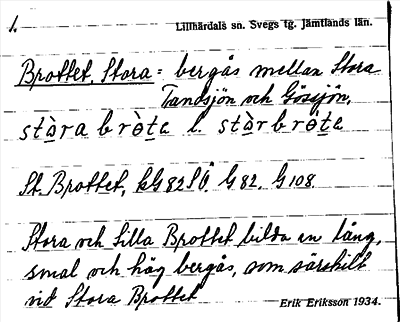 1.
Lillhärdals sn. Svegs tg. Jämtlands län.
Brottet, Stora = bergås mellan Stora
Tandsjön och Gösjön.
stàra bròte l. stàrbròte
St. Brottet, kG82SÖ. G82. G108.
Stora och Lilla Brottet bilda en lång,
smal och hög bergås, som särskilt
vid Stora Brottet
Erik Eriksson 1934.